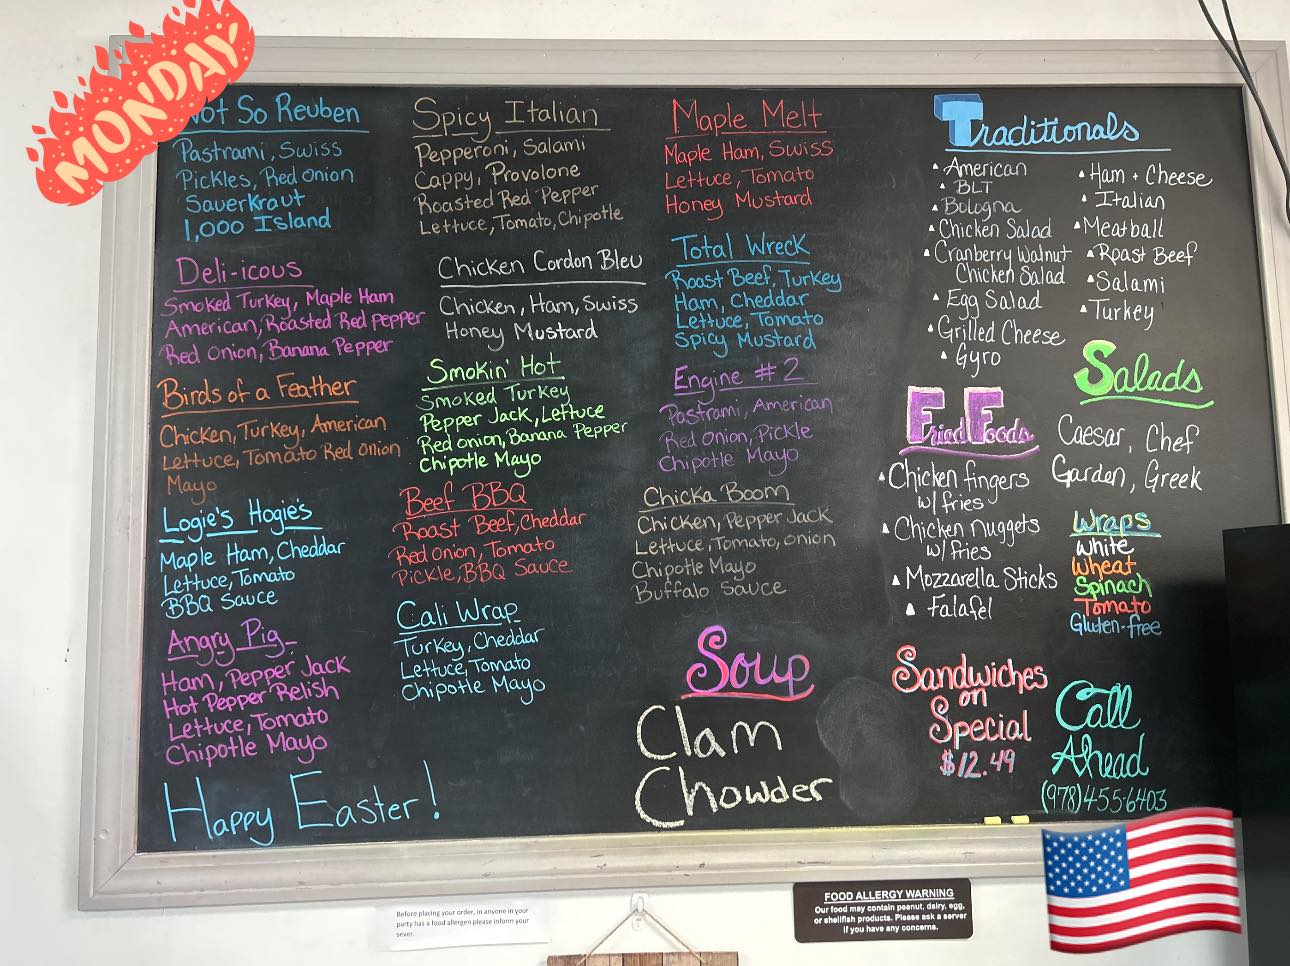 MONDAY
Not So Reuben
Pastrami, Swiss
Pickles, Red Onion
Sauerkraut
1,000 Island
Deli-icous
Smoked Turkey, Maple Ham
American, Roasted Red pepper
Red Onion, Banana Pepper
Birds of a Feather
Chicken, Turkey, American
Lettuce, Tomato Red Onion
Mayo
Logie's Hogie's
Maple Ham, Cheddar
Lettuce, Tomato
BBQ Sauce
Angry Pig
Ham, Pepper Jack
Hot Pepper Relish
Lettuce, Tomato
Chipotle Mayo
Happy Easter!
Spicy Italian
Pepperoni, Salami
Cappy, Provolone
Roasted Red Pepper
Lettuce, Tomato, Chipotle
Chicken Cordon Bleu
Chicken, Ham, Swiss
Honey Mustard
Smokin' Hot
Smoked Turkey
Pepper Jack, Lettuce
Red onion, Banana Pepper
Chipotle Mayo
Beef BBQ
Roast Beef, Cheddar
Red Onion, Tomato
Pickle, BBQ Sauce
Cali Wrap
Turkey, Cheddar
Lettuce, Tomato
Chipotle Mayo
Maple Melt
Maple Ham, Swiss
Lettuce, Tomato
Honey Mustard
Total Wreck
Roast Beef, Turkey
Ham, Cheddar
Lettuce, Tomato
Spicy Mustard
Engine #2
Pastrami, American
Red Onion, Pickle
Chipotle Mayo
Chicka Boom
Chicken, Pepper Jack
Lettuce, Tomato, onion
Chipotle Mayo
Buffalo Sauce
Soup
Clam
Chowder
Traditionals
American
BLT
Bologna
Chicken Salad
Cranberry Walnut
Chicken Salad
Egg Salad
Grilled Cheese
Gyro
Ham + Cheese
Italian
Meatball
Roast Beef
Salami
Turkey
Fried Foods
Chicken fingers
w/ fries
Chicken nuggets
w/ fries
Mozzarella Sticks
Falafel
Salads
Caesar, Chef
Garden, Greek
Wraps
White
Wheat
Spinach
Tomato
Gluten-free
Sandwiches
on
Special
$12.49
Call
Ahead
(978)455-6403
Before placing your order, in anyone in your
party has a food allergen please inform your
sever.
FOOD ALLERGY WARNING
Our food may contain peanut, dairy, egg,
or shellfish products. Please ask a server
if you have any concerns.